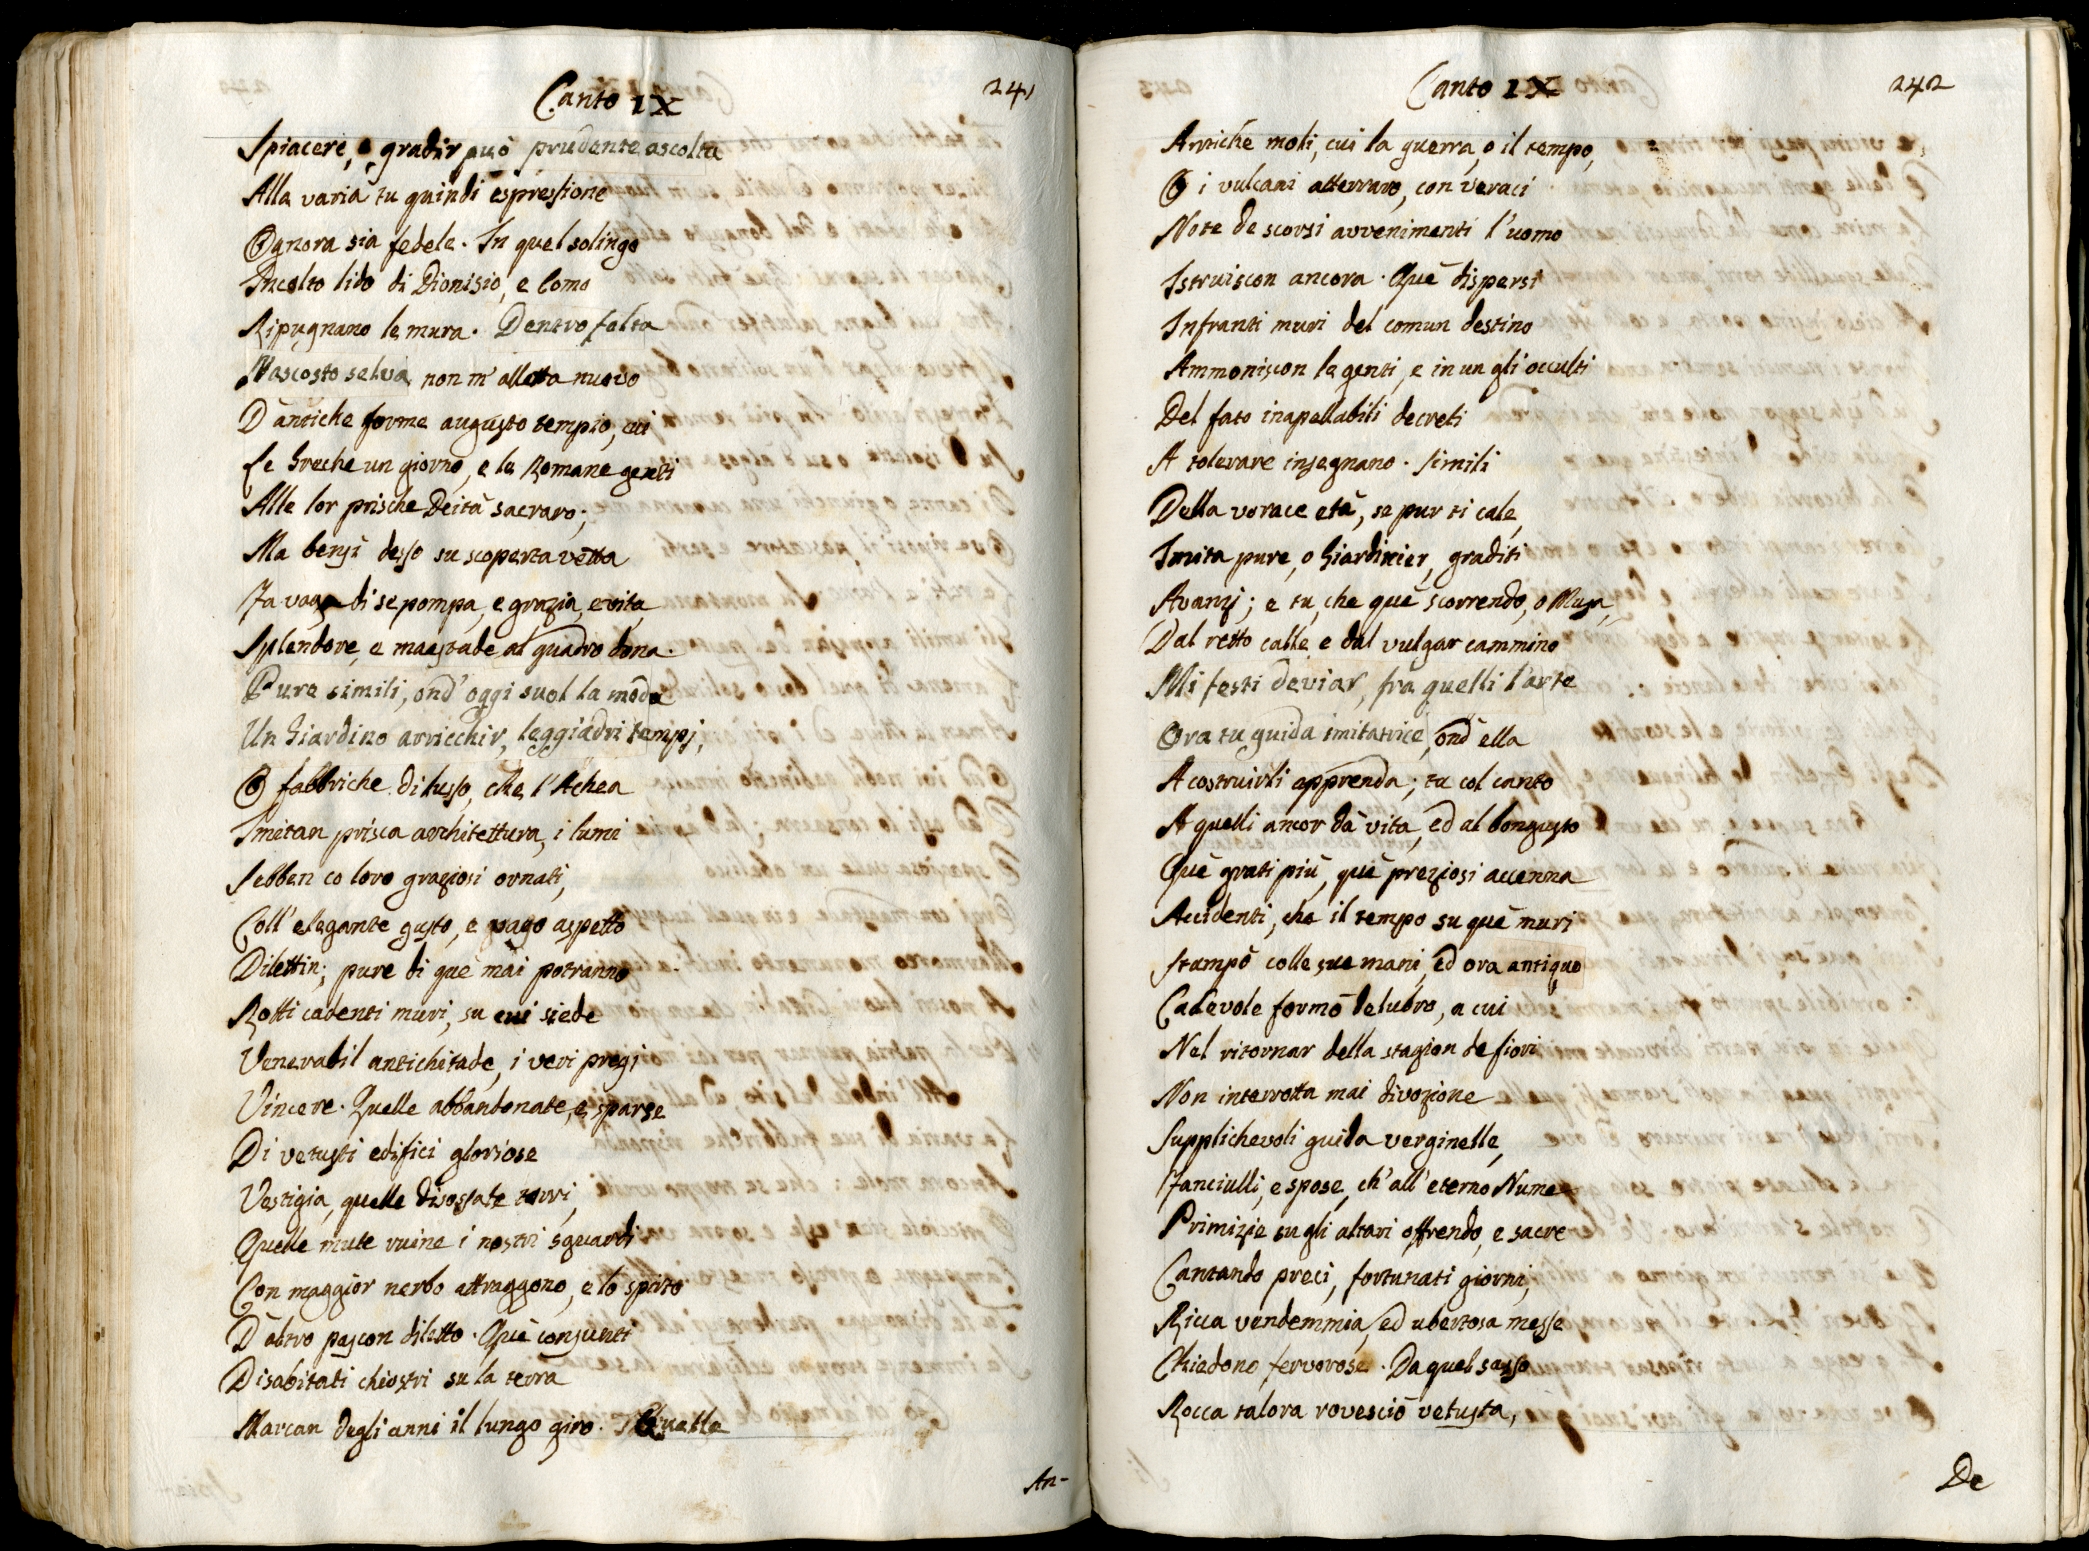 Canto IX
241
Spiacere, e gradir può prudente ascolta
Alla varia tu quindi espressione
Ognora sia fedele. In quel solingo
Incolto lido di Dionisio, e Como
Ripugnano le mura. Dentro folta
Nascosto selva non m'alletta nuovo
D'antiche forme augusto tempio, cui
Le Greche un giorno, e le Romane genti
Alle lor prische Deità sacraro;
Ma bensì desso su scoperta vetta
Fa vaga di se pompa, e grazia, e vita,
Splendore, e maestade al quadro dona.
Pure simili, ond'oggi suol la moda
Un Giardino arricchir, leggiadri tempj,
O fabbriche di lusso, che l'Achea
Imitan prisca architettura, i lumi
Sebben co loro graziosi ornati,
Coll'elegante gusto, e vago aspetto
Dilettin; pure di què mai potranno
Rotti cadenti muri, su cui siede
Venerabil antichitade, i veri pregj
Vincere. Quelle abbandonate, e sparse
Di vetusti edifici gloriose
Vestigia, quelle disossate torri,
Quelle mute ruine i nostri sguardi
Con maggior nerbo attraggono, e lo spirto
D'altro pascon diletto. Què consunti
Disabitati chiostri su la terra
Marcan degli anni il lungo giro. Quelle
An-
Canto IX
242
Antiche moli, cui la guerra, o il tempo,
O i vulcani atterraro, con veraci
Note de scorsi avvenimenti l'uomo
Istruiscon ancora. Què dispersi
Infranti muri del comun destino
Ammoniscon le genti, e in un gli occulti
Del fato inapellabili decreti
A tolerare insegnano. Simili
Della vorace età, se pur ti cale,
Imita pure, o Giardinier, graditi
Avanzi; e tu, che què scorrendo, o Musa,
Dal retto calle, e dal vulgar cammino
Mi festi deviar, fra quelli l'arte
Ora tu guida imitatrice, ond'ella
A costruirli apprenda; tu col canto
A quelli ancor dà vita, ed al bongusto
Què grati più, què preziosi accenna
Accidenti, che il tempo su què muri
Stampò colle sue mani, ed ora antiquo
Cadevole formò delubro, a cui
Nel ritornar della stagion de fiori
Non interrotta mai divozione
Supplichevoli guida verginelle,
Fanciulli, e spose, ch'all'eterno Nume
Primizie su gli altari offrendo, e sacre
Cantando preci, fortunati giorni,
Ricca vendemmia, ed ubertosa messe
Chiedono fervorose. Da quel sasso
Rocca talora rovesciò vetusta,
De